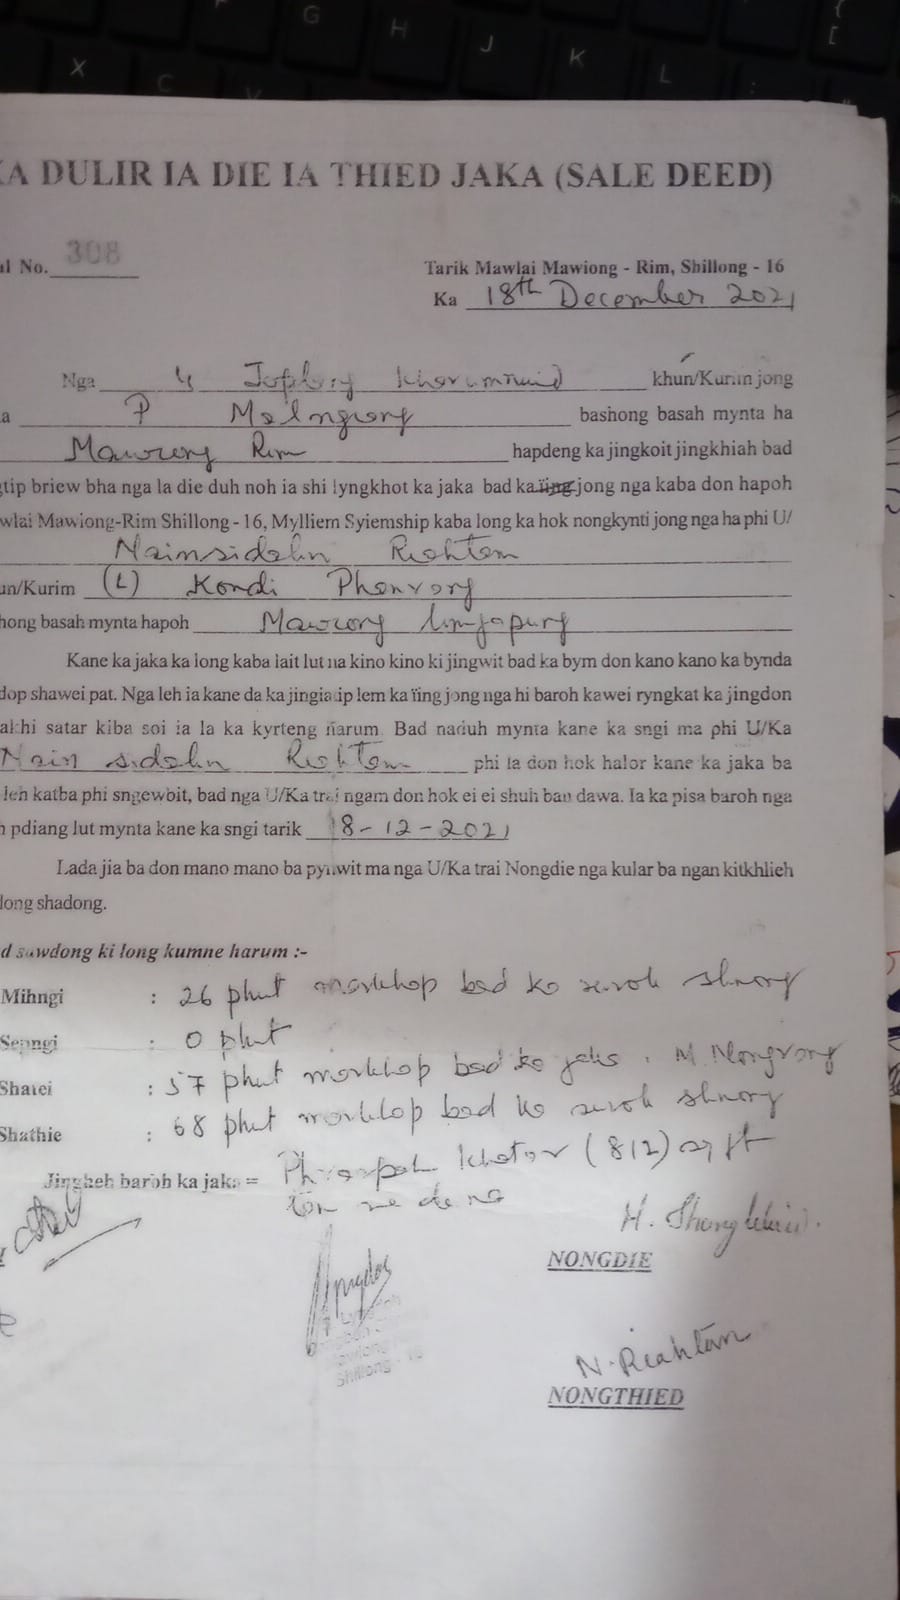 KA DULIR IA DIE IA THIED JAKA (SALE DEED)
al No. 308
Tarik Mawlai Mawiong - Rim, Shillong - 16
Ka 18th December 2021
Nga khun/Kurim jong
a P bashong basah mynta ha
Rim hapdeng ka jingkoit jingkhiah bad
tip briew bha nga la die duh noh ia shi lyngkhot ka jaka bad ka iing jong nga kaba don hapoh
wlai Mawiong-Rim Shillong - 16, Mylliem Syiemship kaba long ka hok nongkynti jong nga ha phi U/
Riahtam
un/Kurim (L) Kondi
hong basah mynta hapoh
Kane ka jaka ka long kaba lait lut na kino kino ki jingwit bad ka bym don kano kano ka bynda
dop shawei pat. Nga leh ia kane da ka jingiatip lem ka ïing jong nga hi baroh kawei ryngkat ka jingdon
akhi satar kiba soi ia la ka kyrteng harum. Bad naduh mynta kane ka sngi ma phi U/Ka
Riahtam phi la don hok halor kane ka jaka ba
leh katba phi sngewbit, bad nga U/Ka trai ngam don hok ei ei shuh ban dawa. Ia ka pisa baroh nga
pdiang lut mynta kane ka sngi tarik 18-12-2021
Lada jia ba don mano mano ba pynwit ma nga U/Ka trai Nongdie nga kular ba ngan kitkhlieh
long shadong.
d sawdong ki long kumne harum :-
Mihngi : 26 phut markhap bad ka surok shnong
Sepngi : 0 phut
Shatei : 57 phut markhap bad ka jaka M. Nongrang
Shathie : 68 phut markhap bad ka surok shnong
Jingheh baroh ka jaka = (812) sq ft
NONGDIE
Shillong - 16
N. Riahtam
NONGTHIED